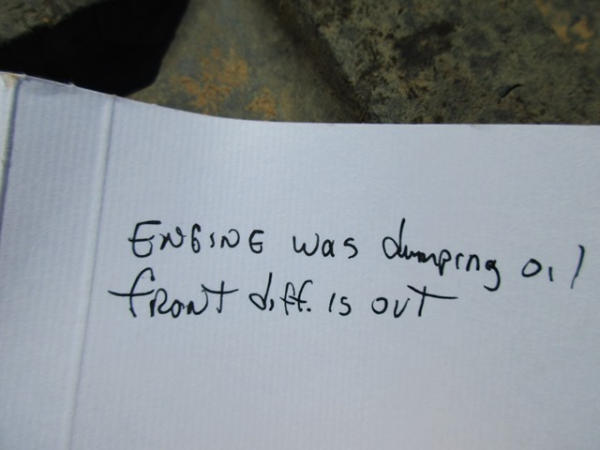 ENGINE was dumping oil
fRONT diff. is OUT